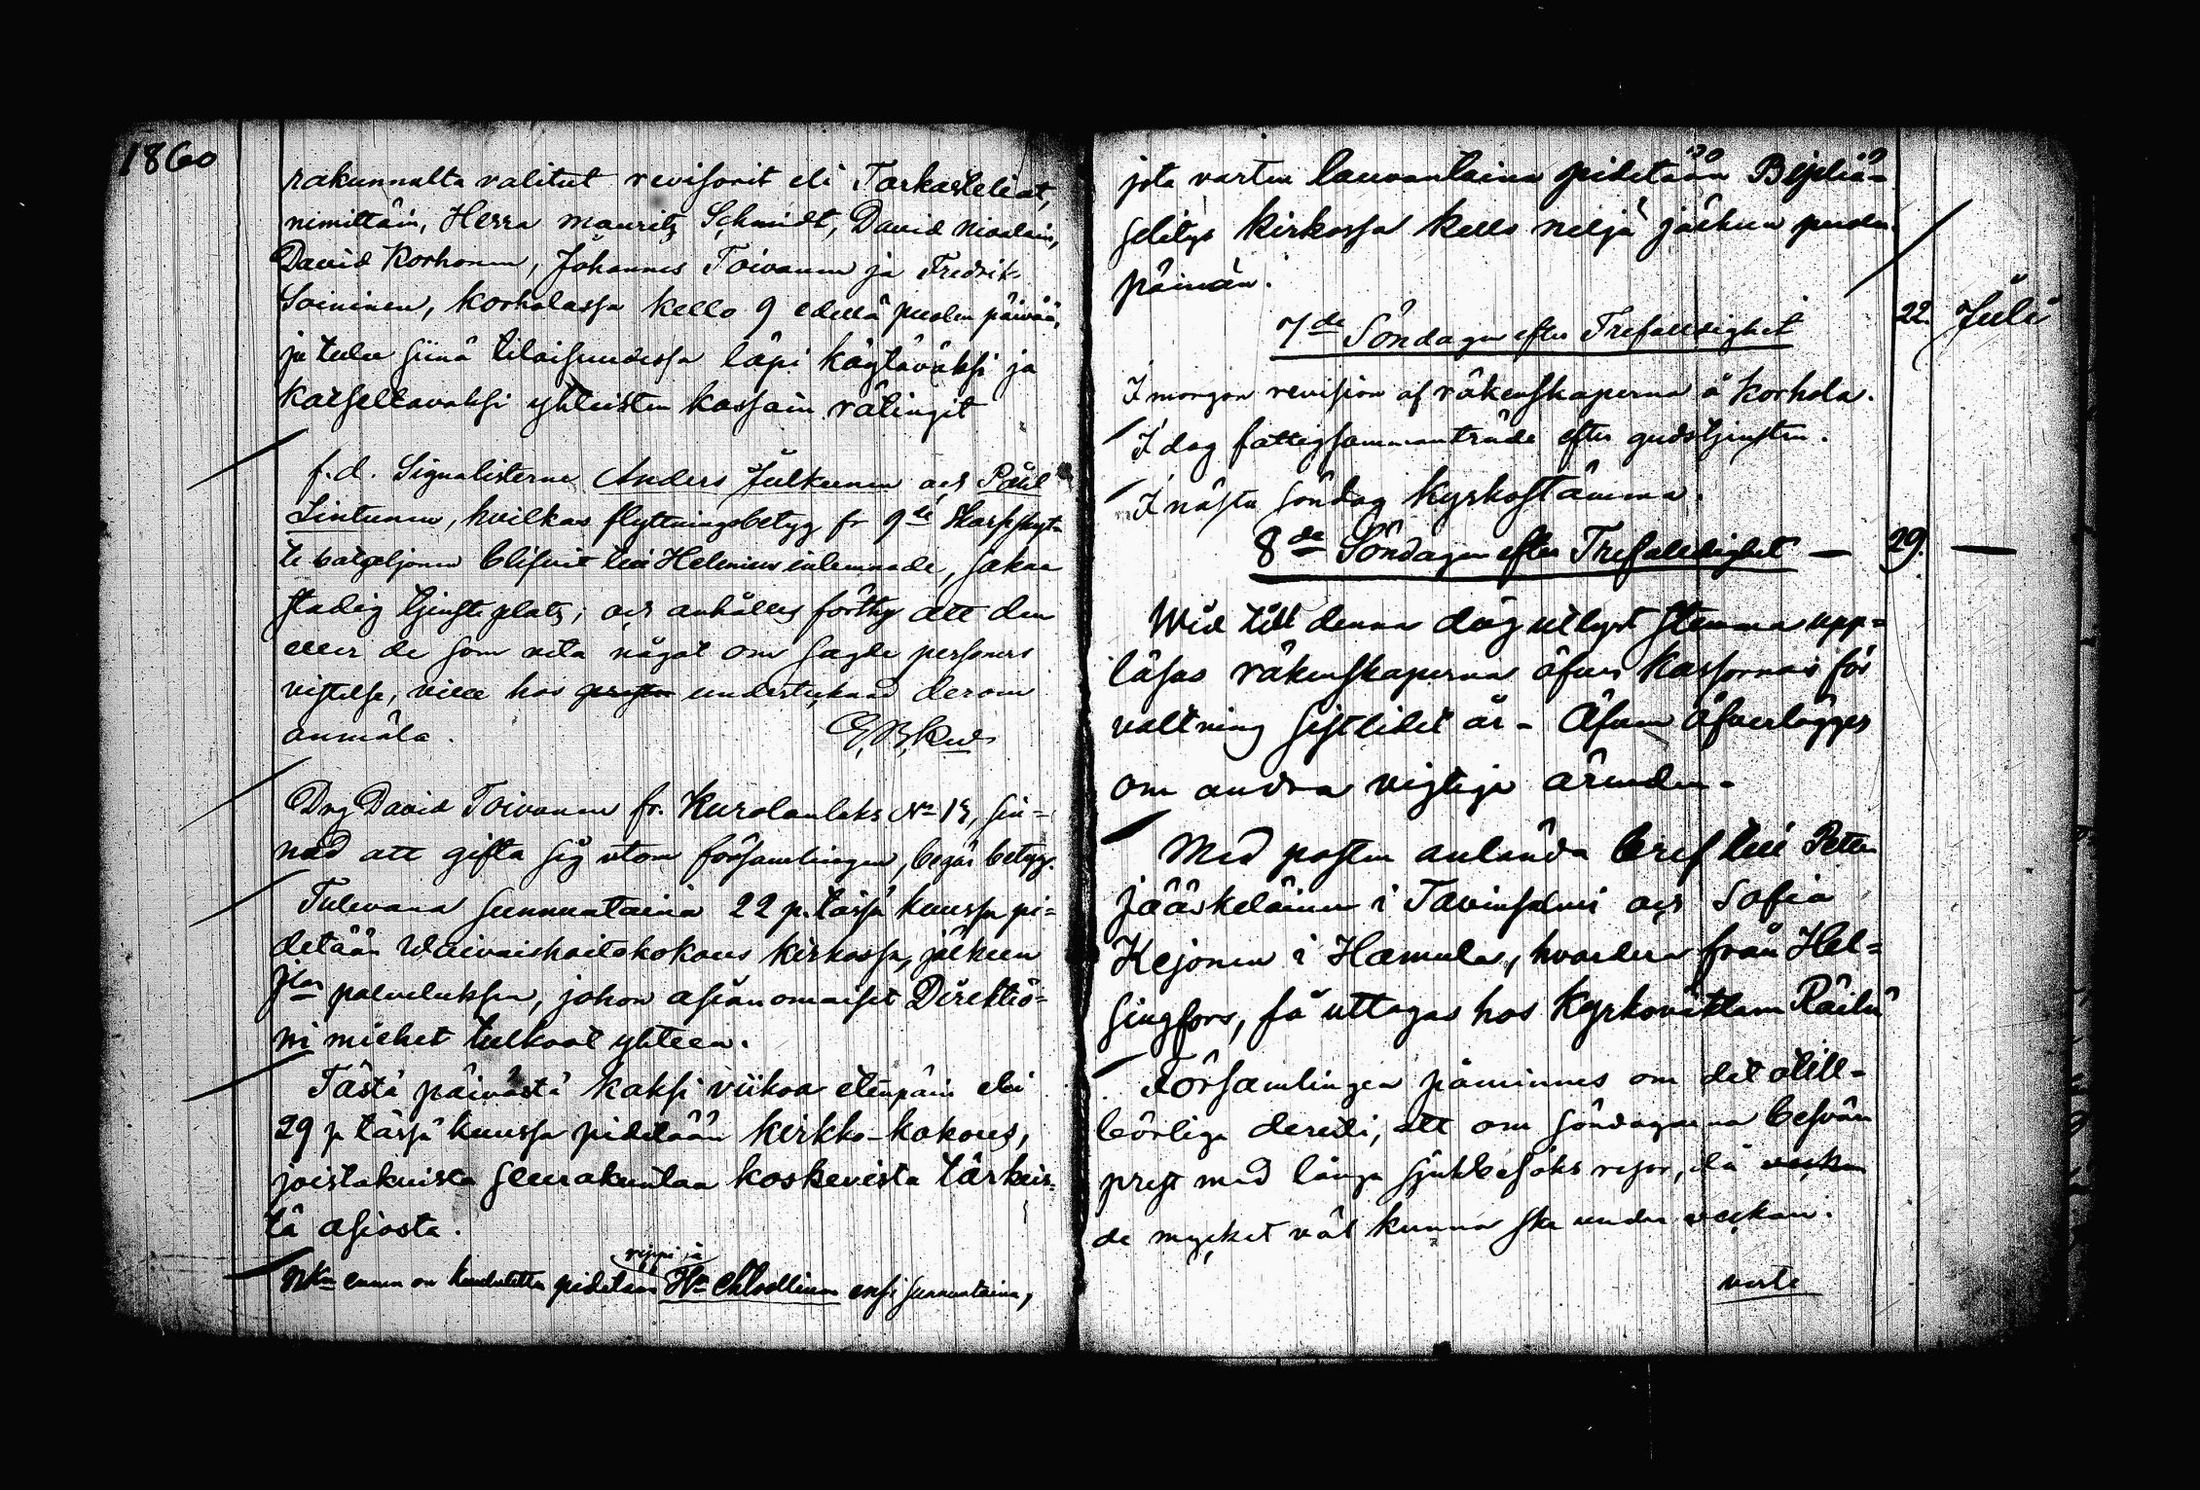 1860
rakunnalta valitut revisorit eli Tarkasteliat,
nimittäin, Herra Mauritz Schmidt, David Nivalain,
David Korhonen, Johannes Toivanen ja Fredrik
Soininen, Korholassa kello 9 edellä puolen päivää,
ja tulee siinä tilaisuudessa läpi käytäväksi ja
katseltavaksi yhteisten kassain rätingit
f.d. Signalisterne Anders Julkunen och Paul
Lintunen, hvilkas flyttningsbetyg fr 9de Skarpskyt-
te bataljonen blifvit till Helenius inlemnade, sakna
stadig tjenste plats; och anhålles förthy att den
eller de som veta något om sagde personers
vistelse, ville hos prosten undertecknad derom
anmäla.
Drg David Toivanen fr. Kurolanlaks No 13, sin-
nad att gifta sig utom församlingen, begär betyg.
Tulevana sunnuntaina 22 p. tässä kuussa pi-
detään Waivaishoitokokous kirkossa, jälkeen
Jlan palveluksen, johon asian omaiset Direktiö-
ni miehet tulkoot yhteen.
Tästä päivästä kaksi viikoa eteenpäin eli
29 p. tässä kuussa pidetään kirkko-kokous,
joistakuista seurakuntaa koskevista tärkeis-
tä asiosta.
rippi ja
on kuulutettu pidetään Hn Ehtoollinen ensi sunnuntaina,
jota varten lauvantaina pidetään Bijbliä-
selitys kirkossa kello neljä jälkeen puolen
päivän.
7de Söndagen efter Trefaldighet
22. Juli
I morgon revision af räkenskaperna å Korhola.
I dag fattigsammanträde efter gudstjensten.
I nästa söndag Kyrkostämma.
8de Söndagen efter Trefaldighet —
29. —
Wid till denna dag utlyst stämma upp-
läsas räkenskaperna öfver Kassornas för
valtning sistlidet år - Äfven öfverlägges
om andra vigtiga ärenden -
Med posten anlända bref till Petter
Jääskeläinen i Tavinsalmi och Sofia
Kejonen i Hamula, hvardera från Hel-
singfors, få uttagas hos Kyrkovaktaren Räihä
Församlingen påminnes om det otill-
börliga deruti, att om söndagarna besvära
prest med långa sjukbesöks resor, då
de mycket väl kunna ske under veckan.
verte